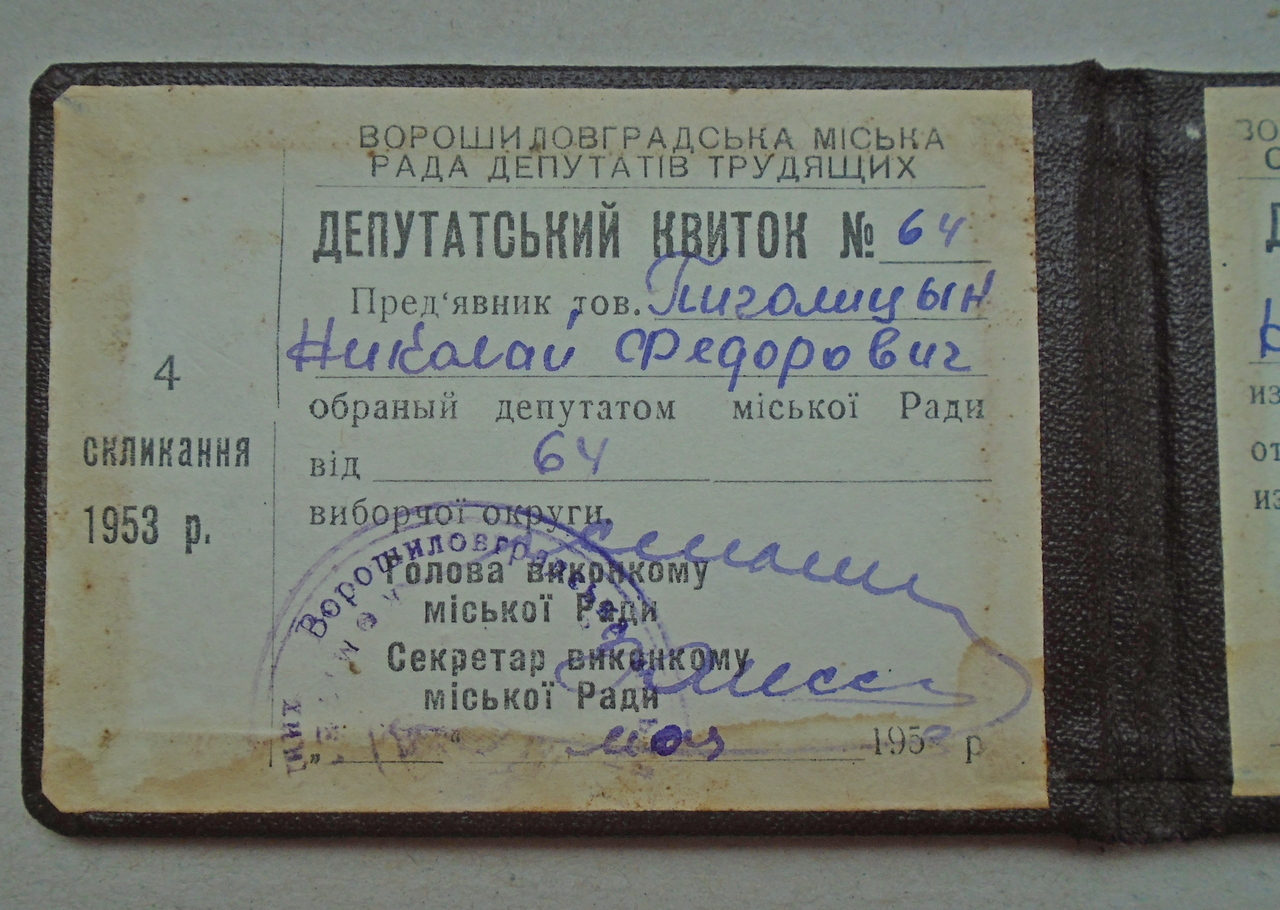 ВОРОШИЛОВГРАДСЬКА МІСЬКА
РАДА ДЕПУТАТІВ ТРУДЯЩИХ
ДЕПУТАТСЬКИЙ КВИТОК № 64
Пред'явник тов. Пиголицын
Николай Федорович
обраный депутатом міської Ради
від 64
виборчої округи
Голова виконкому
міської Ради
Секретар виконкому
міської Ради
" " мая 1953 р
4
скликання
1953 р.
Ворошиловградська
из
от
из